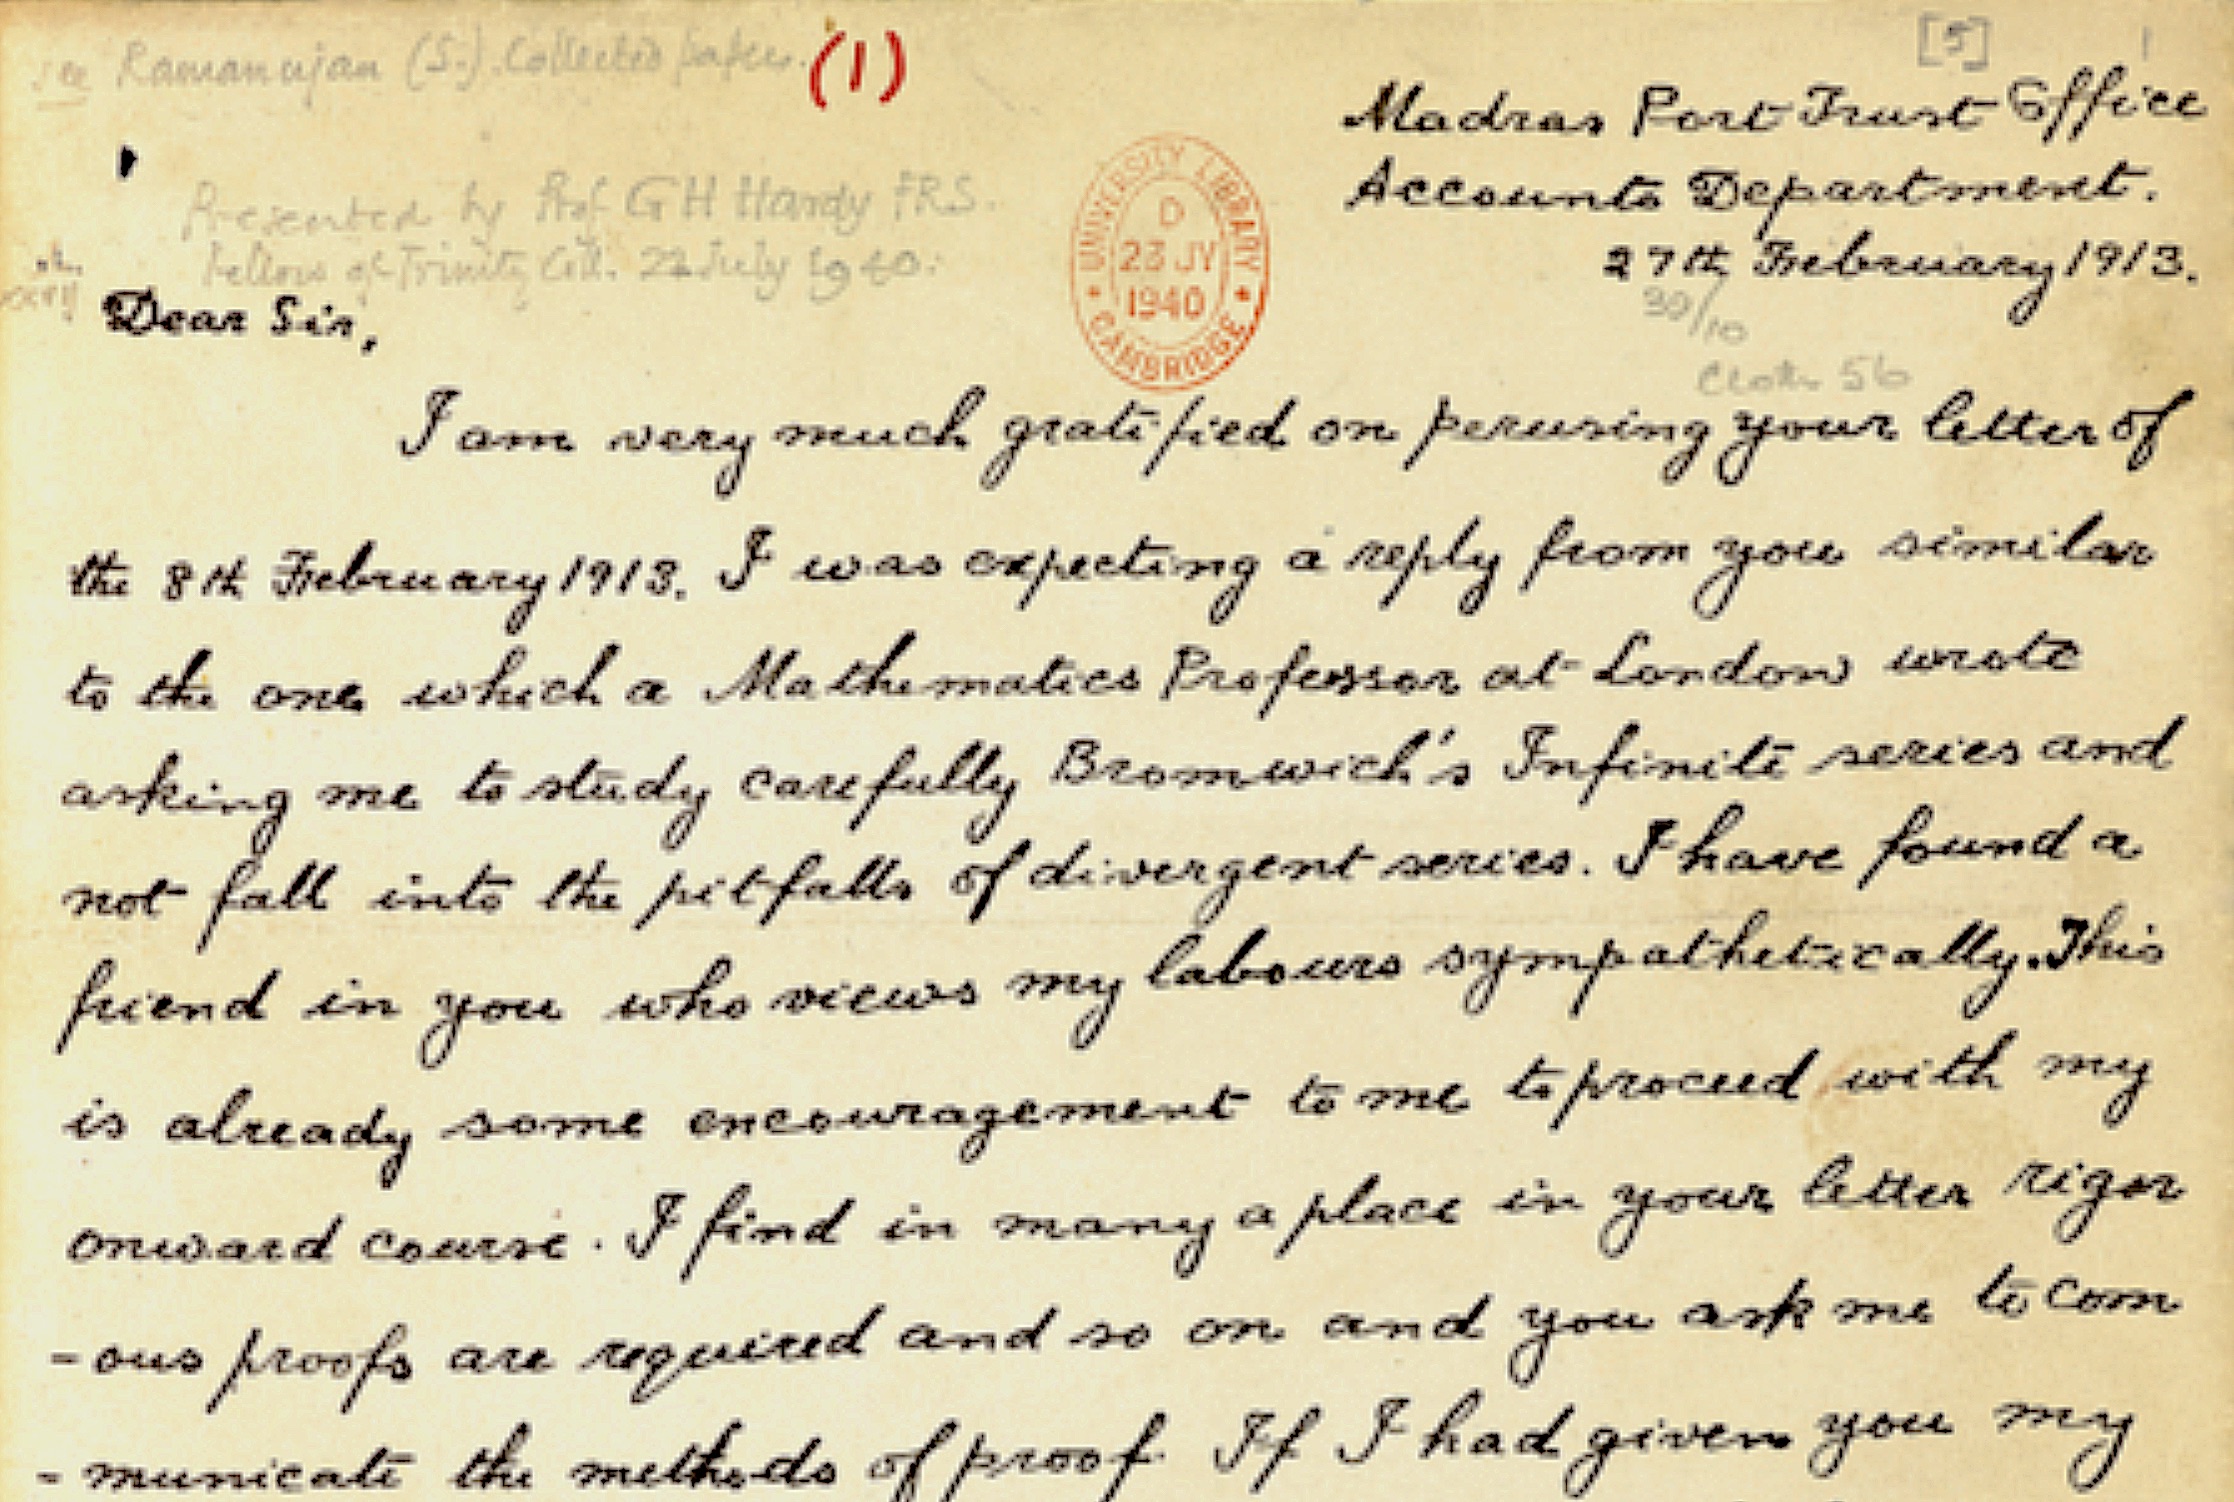 see Ramanujan (S.). Collected papers. (1)
[5] 1
Madras Port Trust Office
Accounts Department.
27th February 1913.
Presented by Prof G H Hardy FRS.
Fellow of Trinity Coll. 22 July 1940.
UNIVERSITY LIBRARY
D
23 JY
1940
CAMBRIDGE
30/10
Dear Sir,
I am very much gratified on perusing your letter of
the 8th February 1913. I was expecting a reply from you similar
to the one which a Mathematics Professor at London wrote
asking me to study carefully Bromwich's Infinite series and
not fall into the pitfalls of divergent series. I have found a
friend in you who views my labours sympathetically. This
is already some encouragement to me to proceed with my
onward course. I find in many a place in your letter rigor
-ous proofs are required and so on and you ask me to com
-municate the methods of proof. If I had given you my